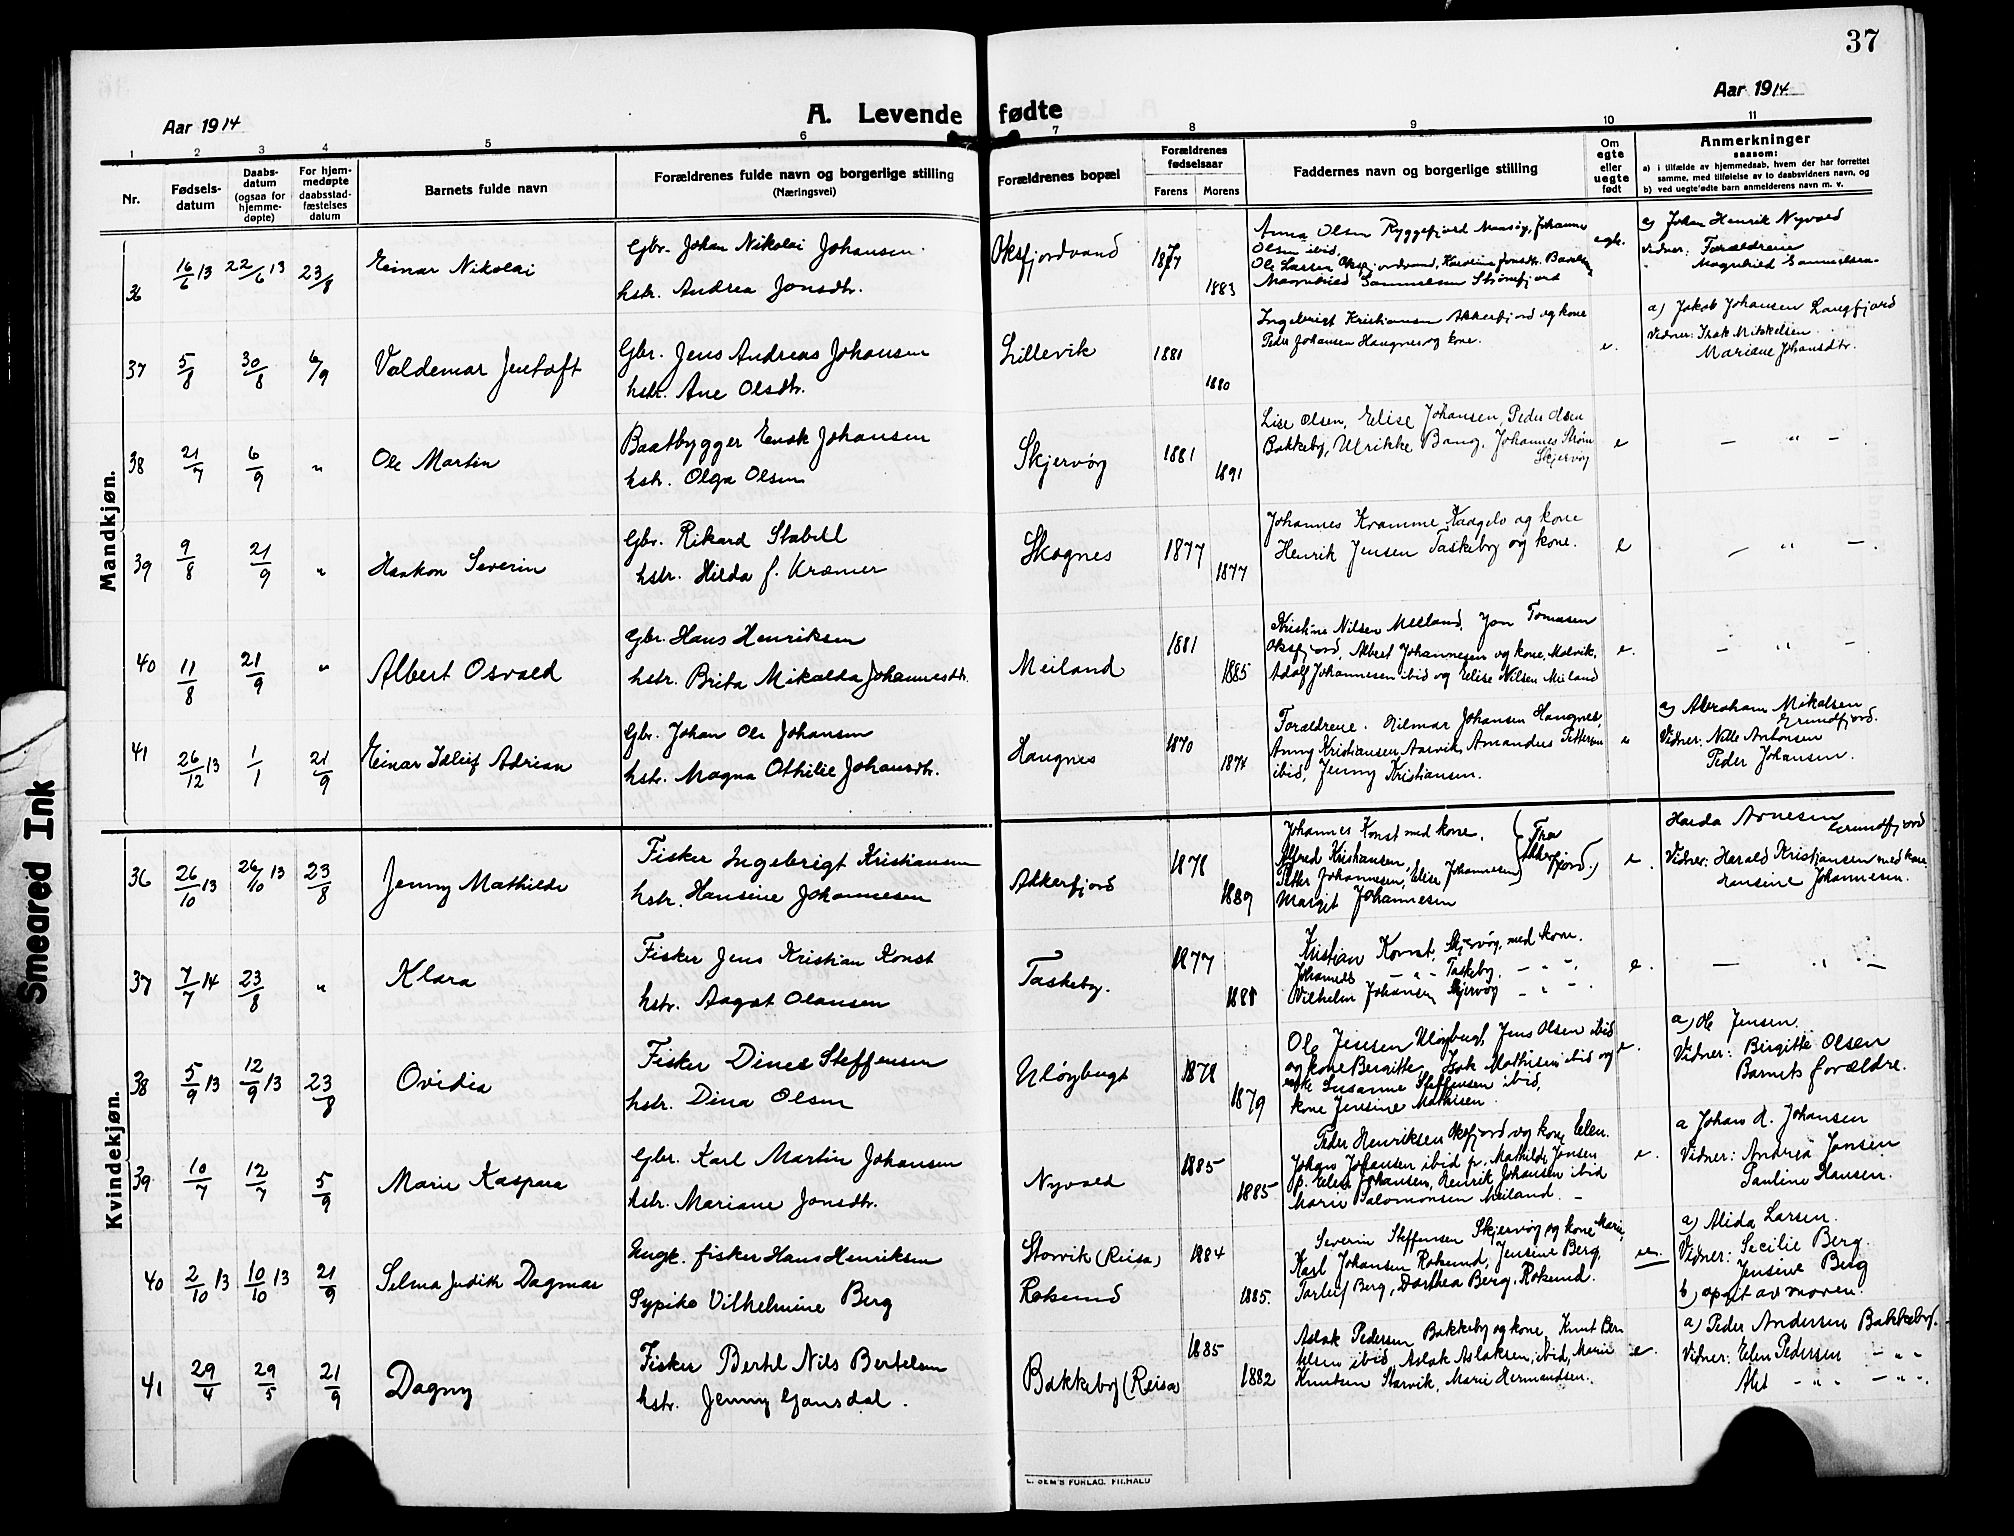 37
Aar 1914
A. Levende fødte
Aar 1914
1 2 3 4 5 6 7 8 9 10 11
Nr.
Fødsels-
datum
Daabs-
datum
(ogsaa for
hjemme-
døpte)
For hjem-
medøpte
daabsstad-
fæstelses
datum
Barnets fulde navn
Forældrenes fulde navn og borgerlige stilling
(Næringsvei)
Forældrenes bopæl
Forældrenes
fødselsaar
Farens Morens
Faddernes navn og borgerlige stilling
Om
egte
eller
uegte
født
Anmerkninger
saasom:
a) i tilfælde av hjemmedaab, hvem der har forrettet
samme, med tilføielse av to daabsvidners navn, og
b) ved uegte fødte barn anmelderens navn m. v.
Mandkjøn.
36 16/6 13 22/6 13 23/8 Einar Nikolai
Gbr. Johan Nikolai Johansen
hstr. Andrea Jonsdtr.
Oksfjordvand
1883
Anna Olsen Ryggefjord Maasøy, Johanne
Olsen ibid,
Ole Larsen Oksfjordvand, Karoline Jonsdtr.
Magnhild Samuelsen Strømfjord
egte.
a) Johan Henrik Nyvold
Vidner: Forældrene
Magnhild Samuelsen
37 5/8 30/8 6/9 Valdemar Jentoft
Gbr. Jens Andreas Johansen
hstr. Ane Olsdtr.
Lillevik
1881
1880
Ingebrigt Kristiansen Akkerfjord og kone
Peder Johansen Haugnes og kone.
e.
a) Jakob Johansen Langfjord
Vidner: Isak Mikkelsen
Mariane Johansdtr.
38 21/7 6/9 " Ole Martin
Baatbygger Enok Johansen
hstr. Olga Olsen
Skjervøy
1881
1891
Lise Olsen, Elise Johansen, Peder Olsen
Bakkeby, Ulrikke Bang, Johannes Strøm
Skjervøy
e
— " —
39 9/8 21/9 " Haakon Severin
Gbr. Rikard Stabell
hstr. Hilda f. Kræmer
Skognes
1877
1877
Johannes Kræmer, og kone
Henrik Jensen Taskeby og kone.
e
— " —
40 11/8 21/9 " Albert Osvald
Gbr. Hans Henriksen
hstr. Brita Mikalda Johannesdtr.
Meiland
1881
1885
Kristine Nilsen Meiland, Jon Tomasen
Oksfjord, Albert Johannesen og kone, Molvik,
Adolf Johannesen ibid og Elise Nilsen Meiland
e.
— " —
41 26/12 13 1/1 21/9 Einar Idleif Adrian
Gbr. Johan Ole Johansen
hstr. Magna Othilie Johansdtr.
Haugnes
1870
1874
Forældrene. Hilmar Johansen Haugnes,
Anny Kristiansen Aarvik, Amandus Pettersen
ibid, Jenny Kristiansen.
e
a) Abraham Mikalsen
Grundfjord.
Vidner: Nille Antonsen
Peder Johansen.
Kvindekjøn.
36 26/10 13 26/10 13 23/8 Jenny Mathilde
Fisker Ingebrigt Kristiansen
hstr. Hansine Johannesen
Akkerfjord
1878
1889
Johannes Konst med kone,
Alfred Kristiansen,
Petter Johannesen, Elise Johannesen
(Fra
Akkerfjord.)
Margit Johannesen
e.
Halda Arnesen
Grundfjord
Vidner: Harald Kristiansen med kone
Hansine Johannesen.
37 7/7 14 23/8 " Klara
Fisker Jens Kristian Konst
hstr. Aagot Olausen
Taskeby.
1877
1888
Kristian Konst, Skjervøy, med kone.
Johannes — " — Taskeby. — " —
Vilhelm Johansen Skjervøy — " —
e.
— " —
38 5/9 13 12/9 13 23/8 Ovidia
Fisker Dines Steffensen
hstr. Dina Olsen
Uløybugt
1878
1879
Ole Jensen Uløybugt, Jens Olsen ibid
og kone Bergitte, Isak Mathisen ibid og
enke Susanne Steffensen ibid,
kone Jensine Mathisen.
e.
a) Ole Jensen.
Vidner: Birgitte Olsen
Barnets forældre.
39 10/7 12/7 5/9 Marie Kaspara
Gbr. Karl Martin Johansen
hstr. Mariane Jonsdtr.
Nyvold
1885
1885
Peder Henriksen Oksfjord og kone Elen.
Johans Johansen ibid p. Mathilde Jonsen
p. Elen Johansen, Henrik Johansen ibid
Marie Salomonsen Meiland. —
e.
a Johans H. Johansen
Vidner: Andrea Jonsen
Pauline Hansen.
40 2/10 13 10/10 13 21/9 Selma Judith Dagmar
Ungk. fisker Hans Henriksen
Sypike Vilhelmine Berg
Storvik (Reisa)
Roksund
1884
1885.
Severin Steffensen Skjervøy og kone Marie,
Karl Johansen Roksund, Jensine Berg,
Torleif Berg, Dorthea Berg, Roksund.
ue.
a) Alida Larsen.
Vidner: Secilie Berg.
Jensine Berg
b) opgit av moren.
41 29/4 29/5 21/9 Dagny
Fisker Bertel Nils Bertelsen
hstr. Jenny Gansdal.
Bakkeby (Reisa)
1885
1882
Aslak Pedersen Bakkeby og kone, Knut Ber
telsen ibid, Aslak Aslaksen, ibid, Marie
Knutsen Storvik, Marie Hermandsen.
e.
a) Peder Andersen Bakkeby.
Vidner: Elen Pedersen — " —
Alet — " — — " —
L. SEM'S FORLAG. FR.HALD
Smeared Ink